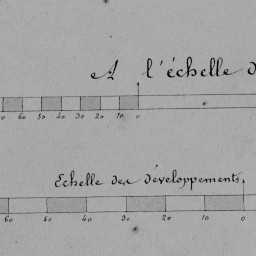 A l'échelle d
0 60 50 40 30 20 10 0
Echelle des développements.
60 40 20 0